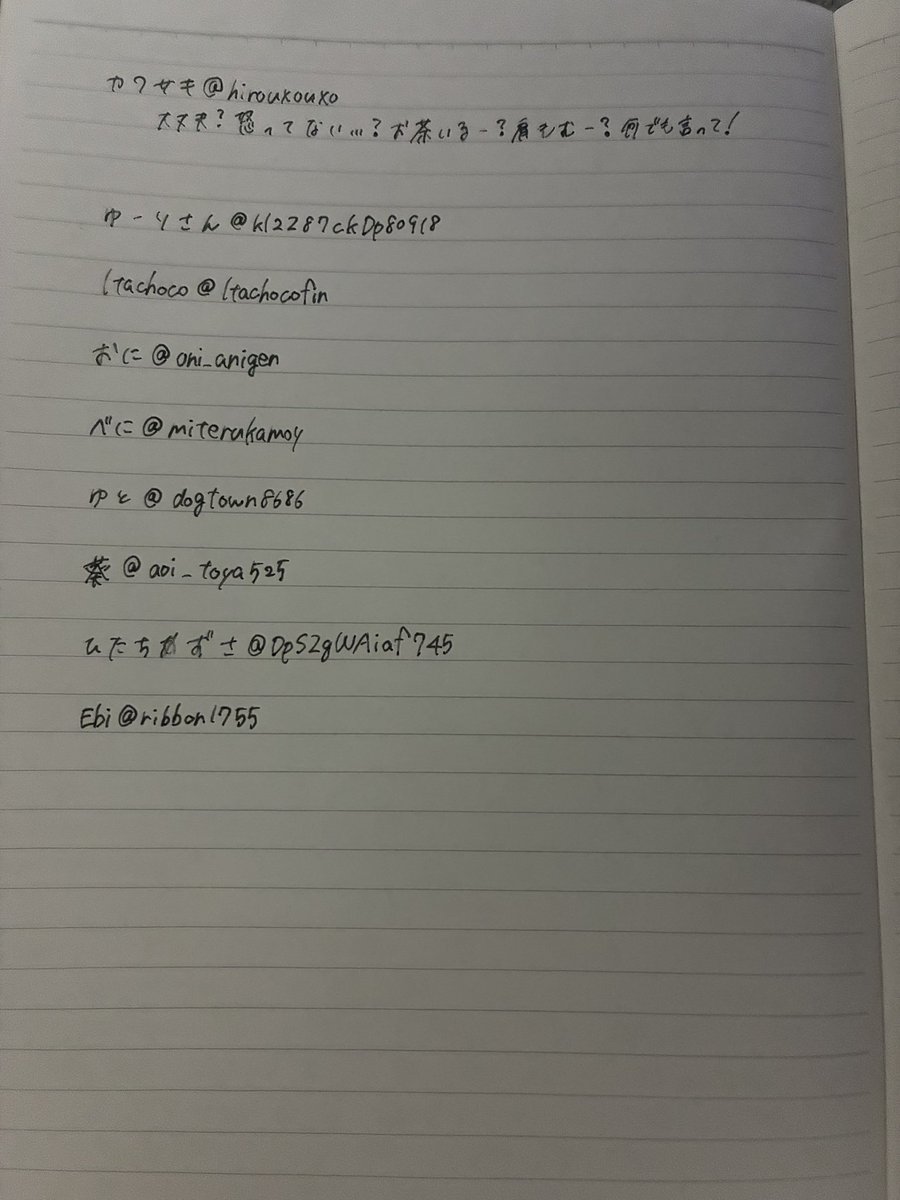 カワサキ@hiroukouko
大丈夫?怒ってない…?お茶いるー?肩もむー?何でも言って!
ゆーりさん@kl2Z87ckDp80918
Itachoco@Itachocofin
おに@oni_anigen
べに@miterukamoy
ゆと@dogtown8686
葵@aoi_toya525
ひたちかずさ@DpSZgWAiaf745
Ebi@ribbon1755